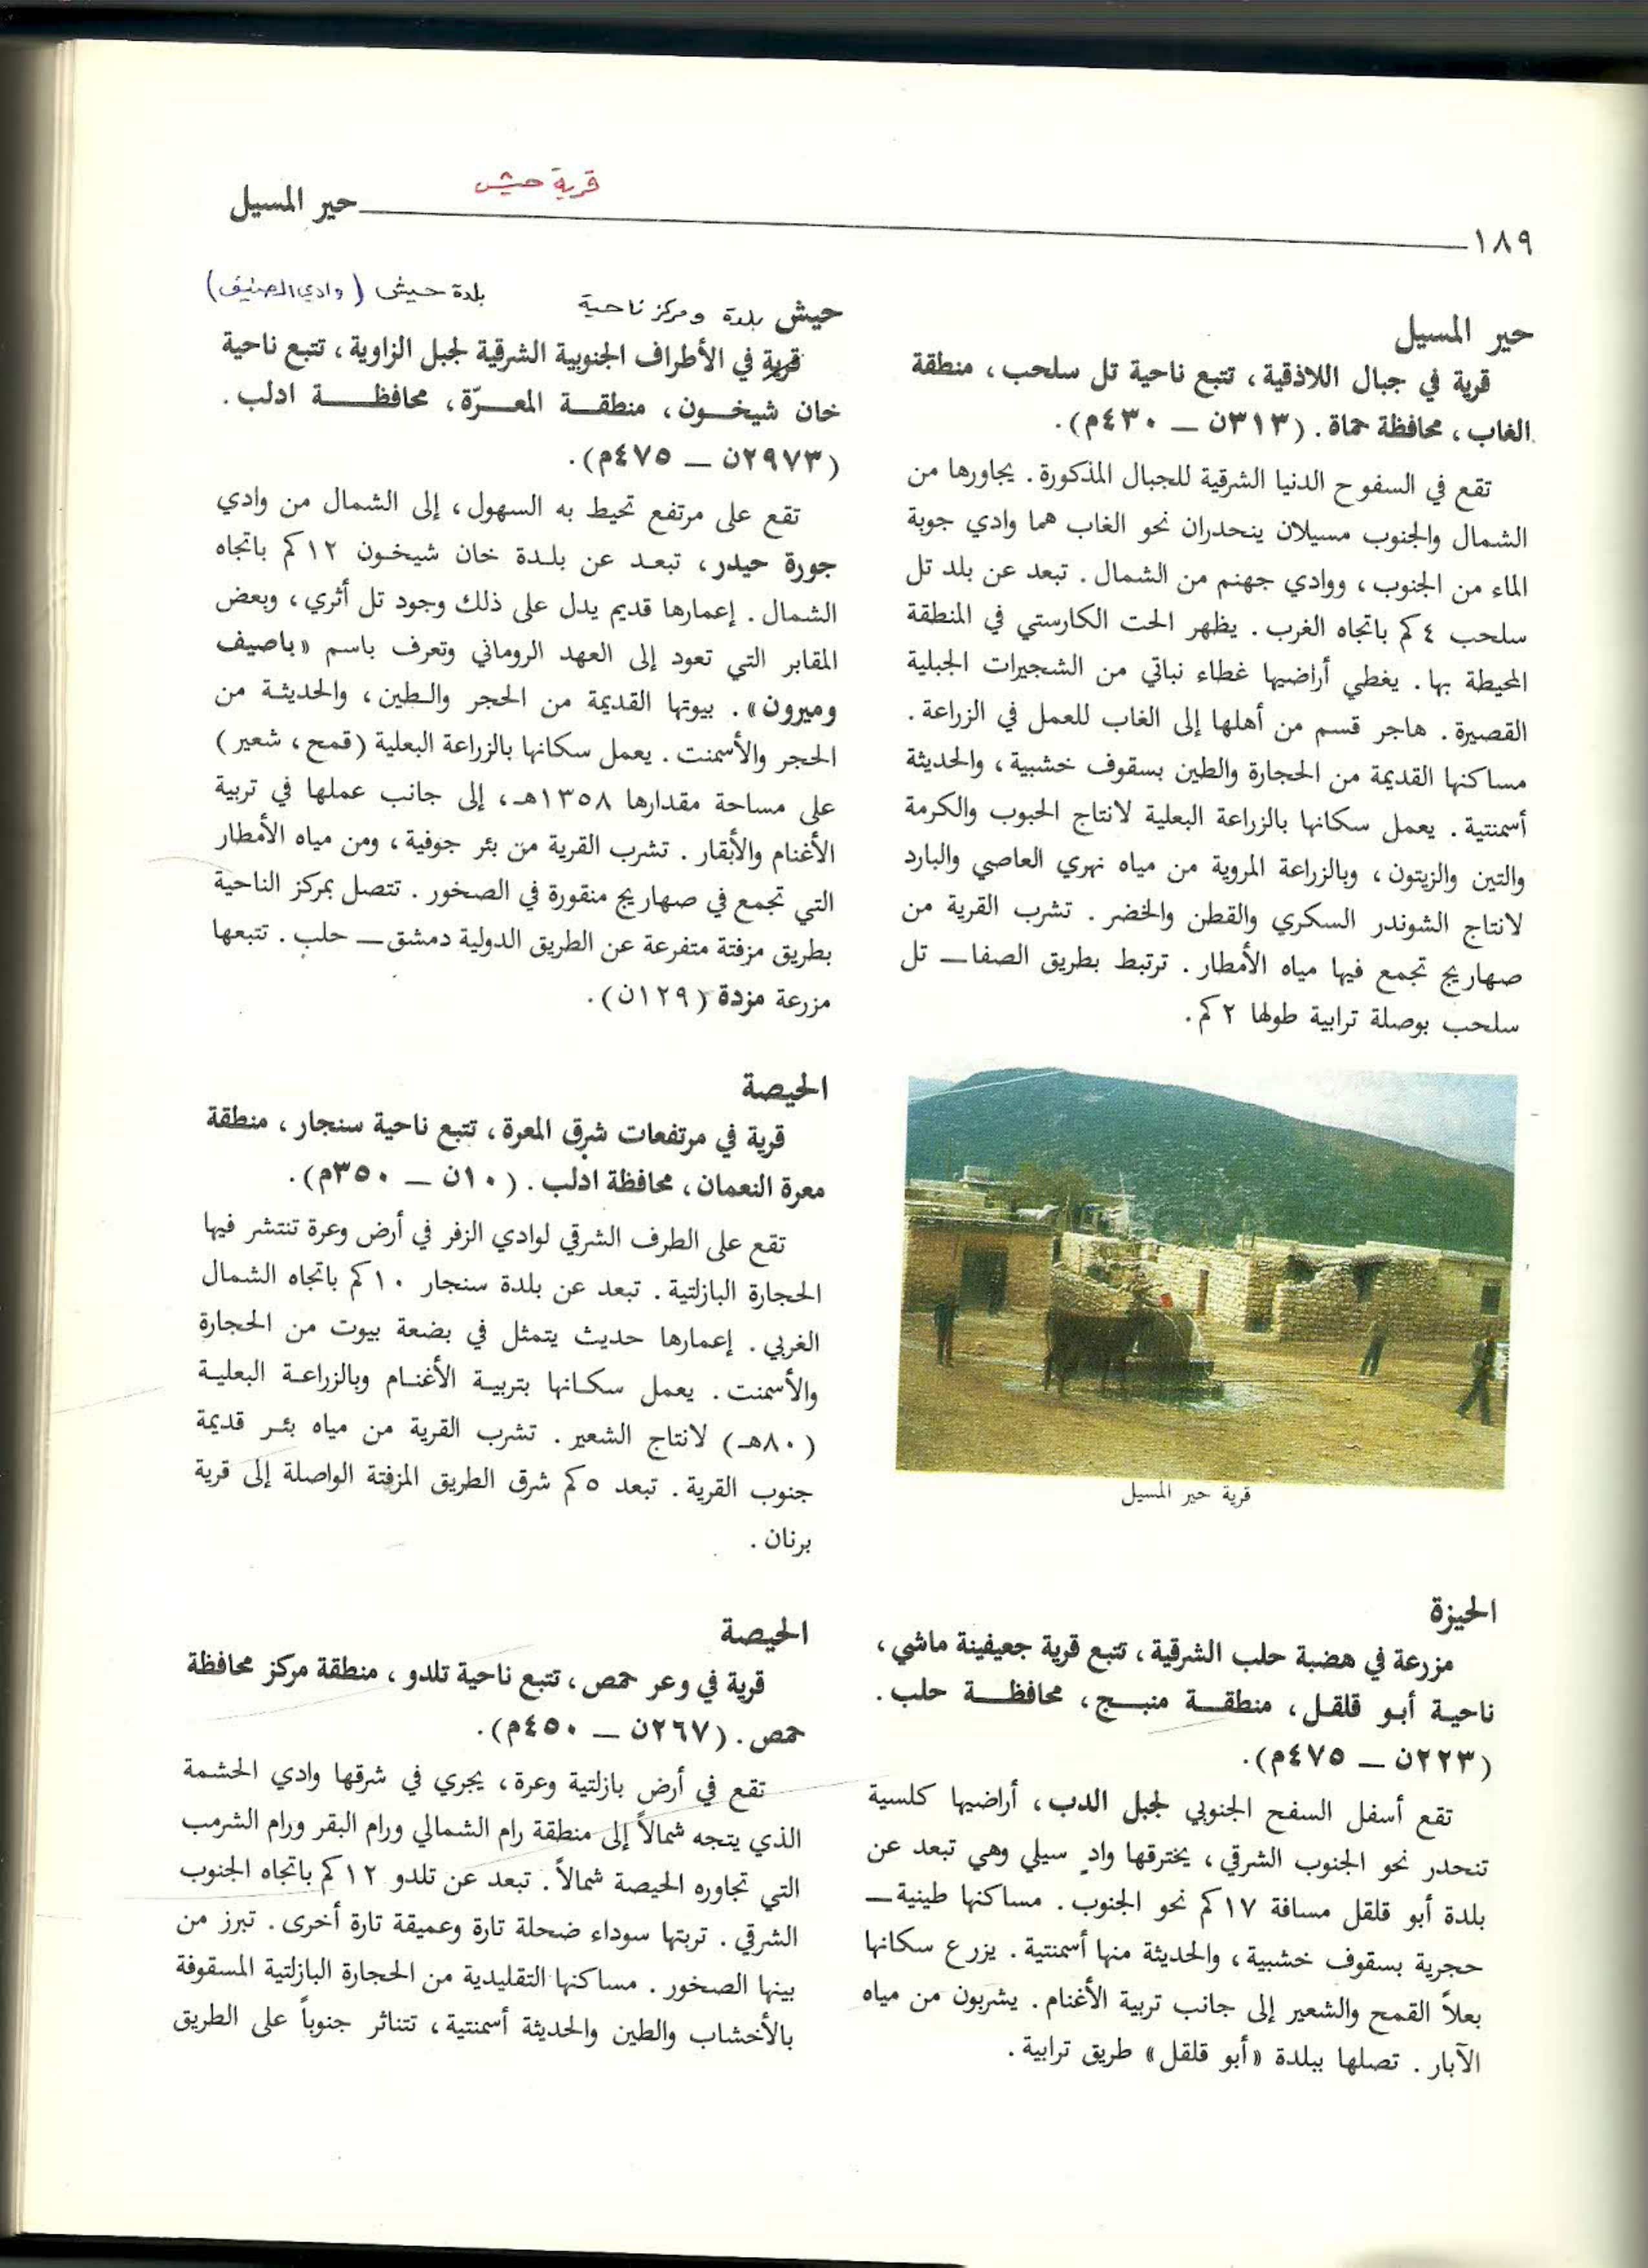 قرية حيش
١٨٩ حير المسيل
حير المسيل
قرية في جبال اللاذقية، تتبع ناحية تل سلحب، منطقة
الغاب، محافظة حماة. (٣١٣ن – ٤٣٠م).
تقع في السفوح الدنيا الشرقية للجبال المذكورة. يجاورها من
الشمال والجنوب مسيلان ينحدران نحو الغاب هما وادي جوبة
الماء من الجنوب، ووادي جهنم من الشمال. تبعد عن بلد تل
سلحب ٤ كم باتجاه الغرب. يظهر الحت الكارستي في المنطقة
المحيطة بها. يغطي أراضيها غطاء نباتي من الشجيرات الجبلية
القصيرة. هاجر قسم من أهلها إلى الغاب للعمل في الزراعة.
مساكنها القديمة من الحجارة والطين بسقوف خشبية، والحديثة
أسمنتية. يعمل سكانها بالزراعة البعلية لانتاج الحبوب والكرمة
والتين والزيتون، وبالزراعة المروية من مياه نهري العاصي والبارد
لانتاج الشوندر السكري والقطن والخضر. تشرب القرية من
صهاريج تجمع فيها مياه الأمطار. ترتبط بطريق الصفا – تل
سلحب بوصلة ترابية طولها ٢ كم.
قرية حير المسيل
الحيزة
مزرعة في هضبة حلب الشرقية، تتبع قرية جعيفينة ماشي،
ناحية أبو قلقل، منطقة منبج، محافظة حلب.
(٢٢٣ن – ٤٧٥م).
تقع أسفل السفح الجنوبي لجبل الدب، أراضيها كلسية
تنحدر نحو الجنوب الشرقي، يخترقها وادٍ سيلي وهي تبعد عن
بلدة أبو قلقل مسافة ١٧ كم نحو الجنوب. مساكنها طينية –
حجرية بسقوف خشبية، والحديثة منها أسمنتية. يزرع سكانها
بعلاً القمح والشعير إلى جانب تربية الأغنام. يشربون من مياه
الآبار. تصلها ببلدة «أبو قلقل» طريق ترابية.
حيش بلدة ومركز ناحية بلدة حيش (وادي الصنيف)
قرية في الأطراف الجنوبية الشرقية لجبل الزاوية، تتبع ناحية
خان شيخون، منطقة المعرّة، محافظة ادلب.
(٢٩٧٣ن – ٤٧٥م).
تقع على مرتفع تحيط به السهول، إلى الشمال من وادي
جورة حيدر، تبعد عن بلدة خان شيخون ١٢ كم باتجاه
الشمال. إعمارها قديم يدل على ذلك وجود تل أثري، وبعض
المقابر التي تعود إلى العهد الروماني وتعرف باسم «باصيف
وميرون». بيوتها القديمة من الحجر والطين، والحديثة من
الحجر والأسمنت. يعمل سكانها بالزراعة البعلية (قمح، شعير)
على مساحة مقدارها ١٣٥٨هـ، إلى جانب عملها في تربية
الأغنام والأبقار. تشرب القرية من بئر جوفية، ومن مياه الأمطار
التي تجمع في صهاريج منقورة في الصخور. تتصل بمركز الناحية
بطريق مزفتة متفرعة عن الطريق الدولية دمشق – حلب. تتبعها
مزرعة مزدة (١٢٩ن).
الحيصة
قرية في مرتفعات شرق المعرة، تتبع ناحية سنجار، منطقة
معرة النعمان، محافظة ادلب. (١٠ن – ٣٥٠م).
تقع على الطرف الشرقي لوادي الزفر في أرض وعرة تنتشر فيها
الحجارة البازلتية. تبعد عن بلدة سنجار ١٠ كم باتجاه الشمال
الغربي. إعمارها حديث يتمثل في بضعة بيوت من الحجارة
والأسمنت. يعمل سكانها بتربية الأغنام وبالزراعة البعلية
(٨٠هـ) لانتاج الشعير. تشرب القرية من مياه بئر قديمة
جنوب القرية. تبعد ٥ كم شرق الطريق المزفتة الواصلة إلى قرية
برنان.
الحيصة
قرية في وعر حمص، تتبع ناحية تلدو، منطقة مركز محافظة
حمص. (٢٦٧ن – ٤٥٠م).
تقع في أرض بازلتية وعرة، يجري في شرقها وادي الحشمة
الذي يتجه شمالاً إلى منطقة رام الشمالي ورام البقر ورام الشرمب
التي تجاوره الحيصة شمالاً. تبعد عن تلدو ١٢ كم باتجاه الجنوب
الشرقي. تربتها سوداء ضحلة تارة وعميقة تارة أخرى. تبرز من
بينها الصخور. مساكنها التقليدية من الحجارة البازلتية المسقوفة
بالأخشاب والطين والحديثة أسمنتية، تتناثر جنوباً على الطريق